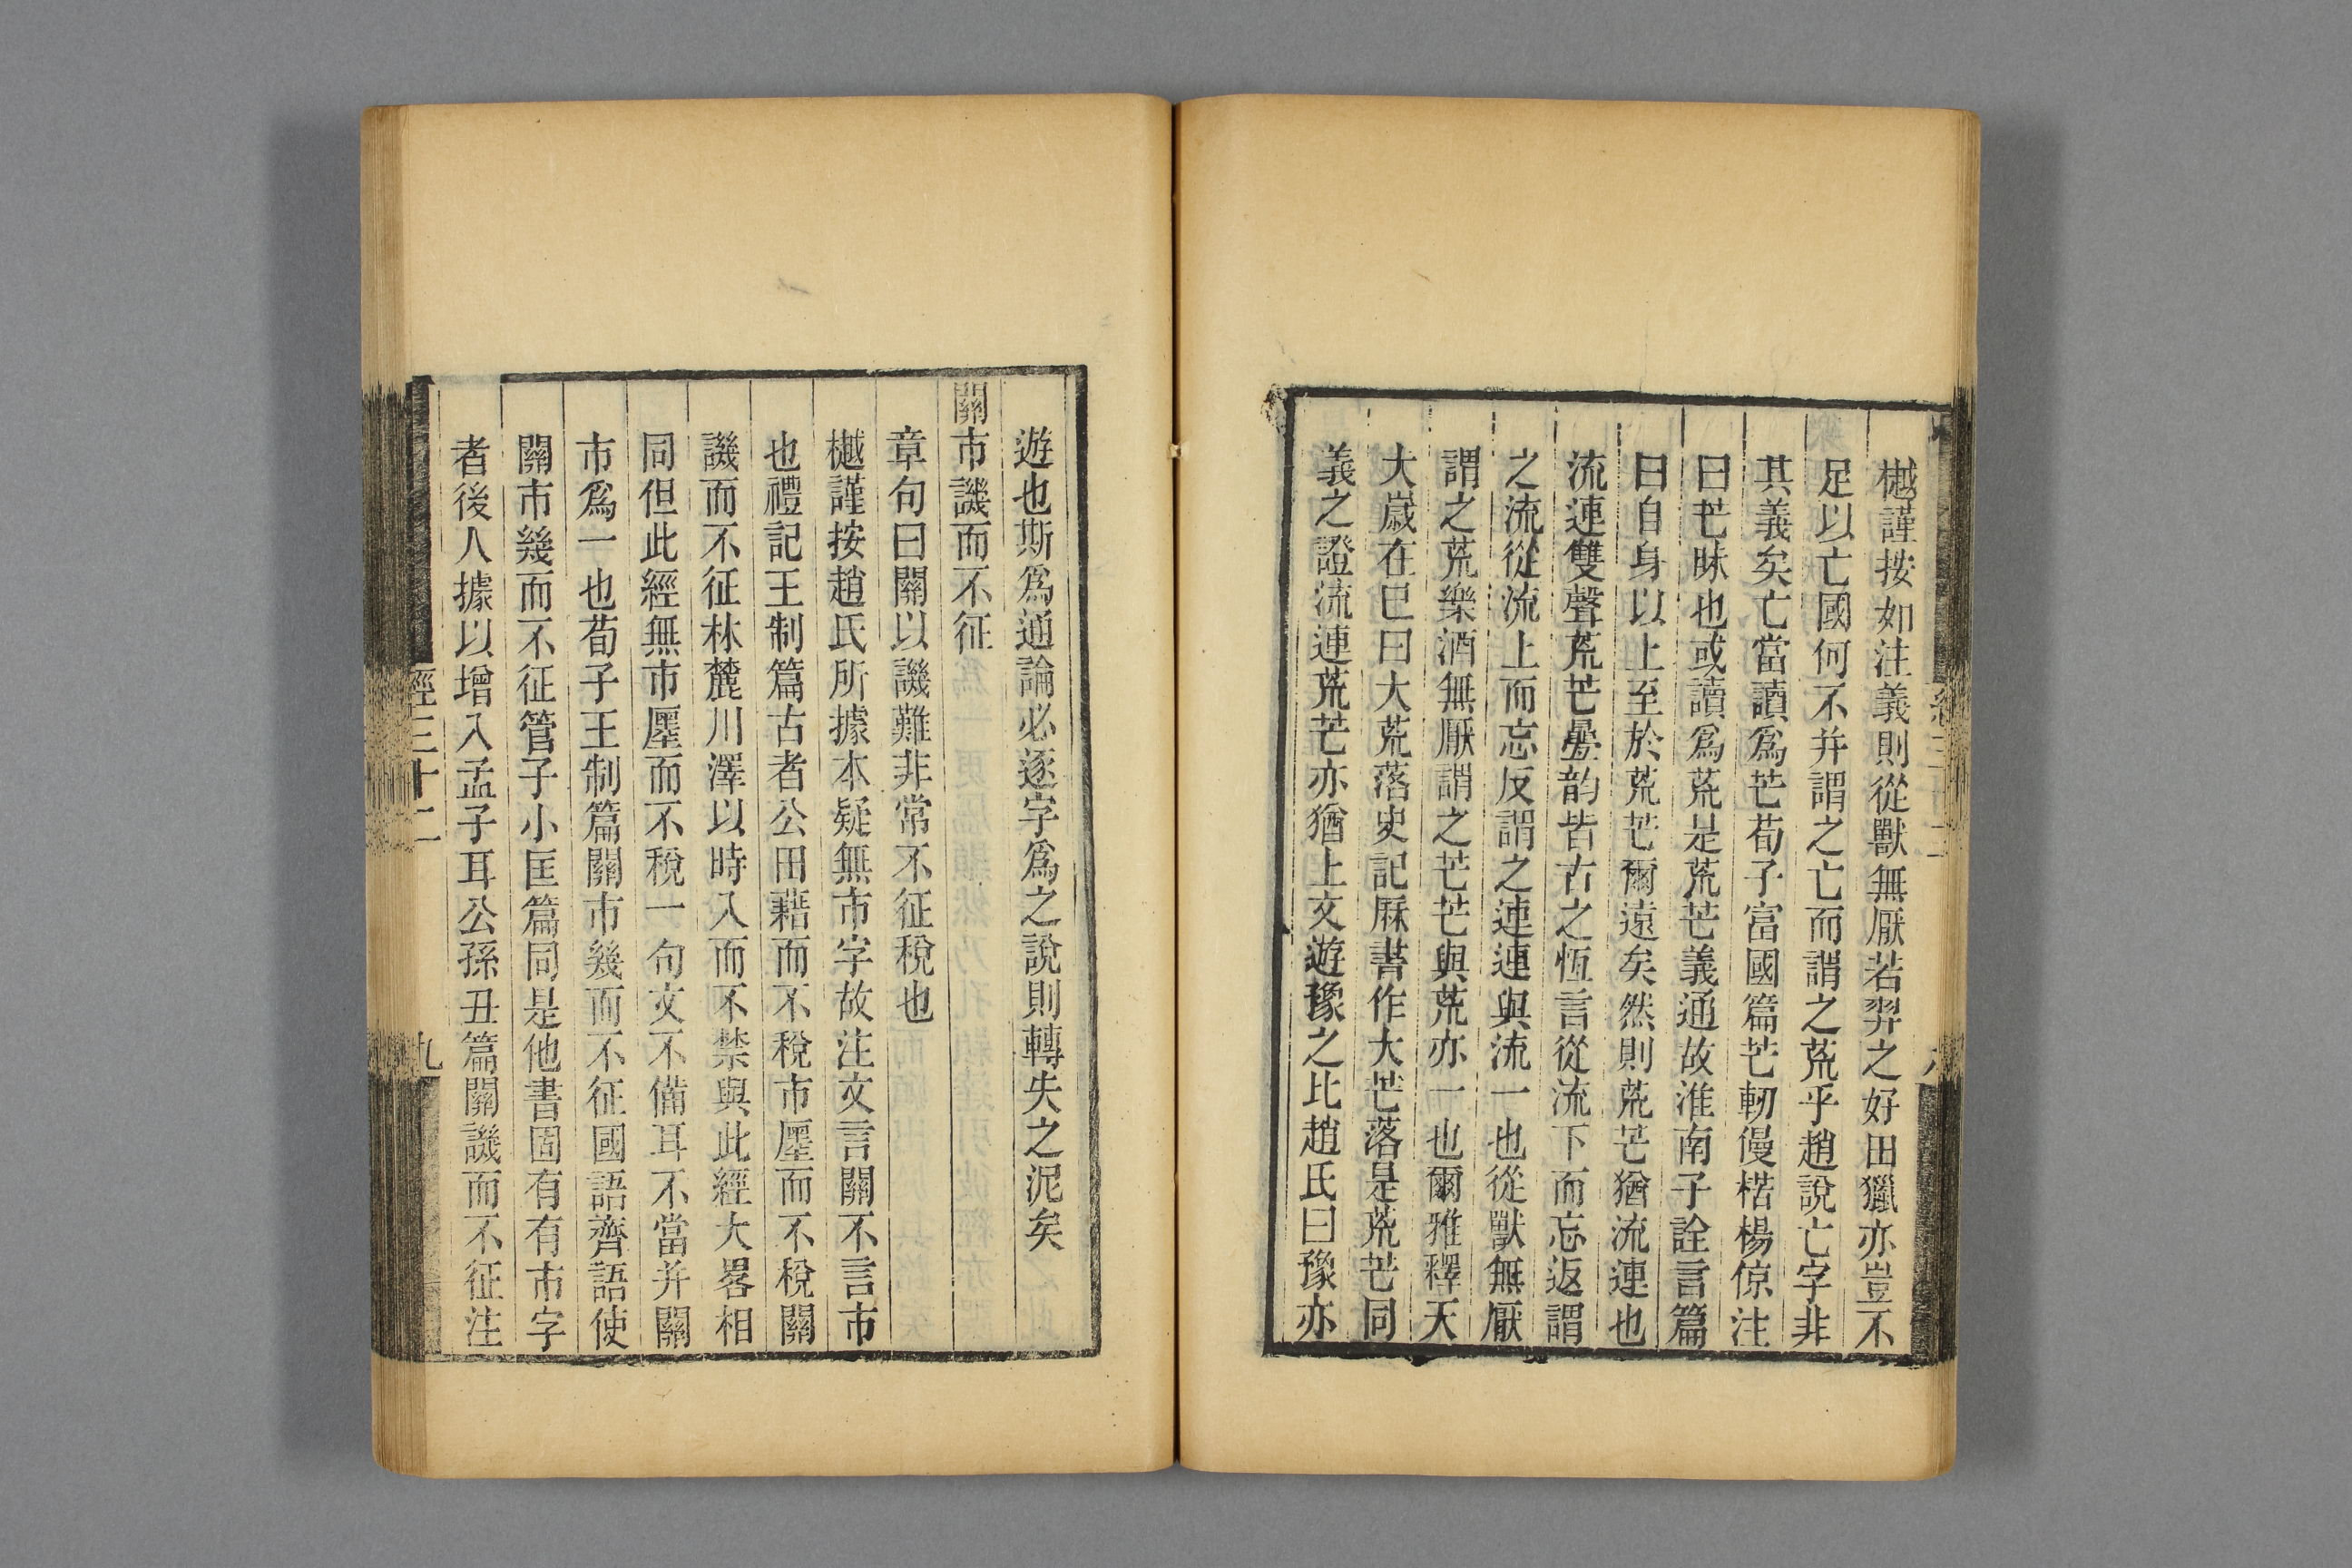 樾謹按如注義則從獸無厭若羿之好田獵亦豈不
足以亡國何不并謂之亡而謂之荒乎趙說亡字非
其義矣亡當讀爲芒荀子富國篇芒軔僈楛楊倞注
曰芒昧也或讀爲荒是荒芒義通故淮南子詮言篇
曰自身以上至於荒芒爾遠矣然則荒芒猶流連也
流連雙聲荒芒疊韵皆古之恆言從流下而忘返謂
之流從流上而忘反謂之連連與流一也從獸無厭
謂之荒樂酒無厭謂之芒芒與荒亦一也爾雅釋天
大歲在巳曰大荒落史記厤書作大芒落是荒芒同
義之證流連荒芒亦猶上文遊豫之比趙氏曰豫亦
遊也斯爲通論必逐字爲之說則轉失之泥矣
關市譏而不征
章句曰關以譏難非常不征稅也
樾謹按趙氏所據本疑無市字故注文言關不言市
也禮記王制篇古者公田藉而不稅市廛而不稅關
譏而不征林麓川澤以時入而不禁與此經大畧相
同但此經無市廛而不稅一句文不備耳不當并關
市爲一也荀子王制篇關市幾而不征國語齊語使
關市幾而不征管子小匡篇同是他書固有有市字
者後人據以增入孟子耳公孫丑篇關譏而不征注
經三十二
九